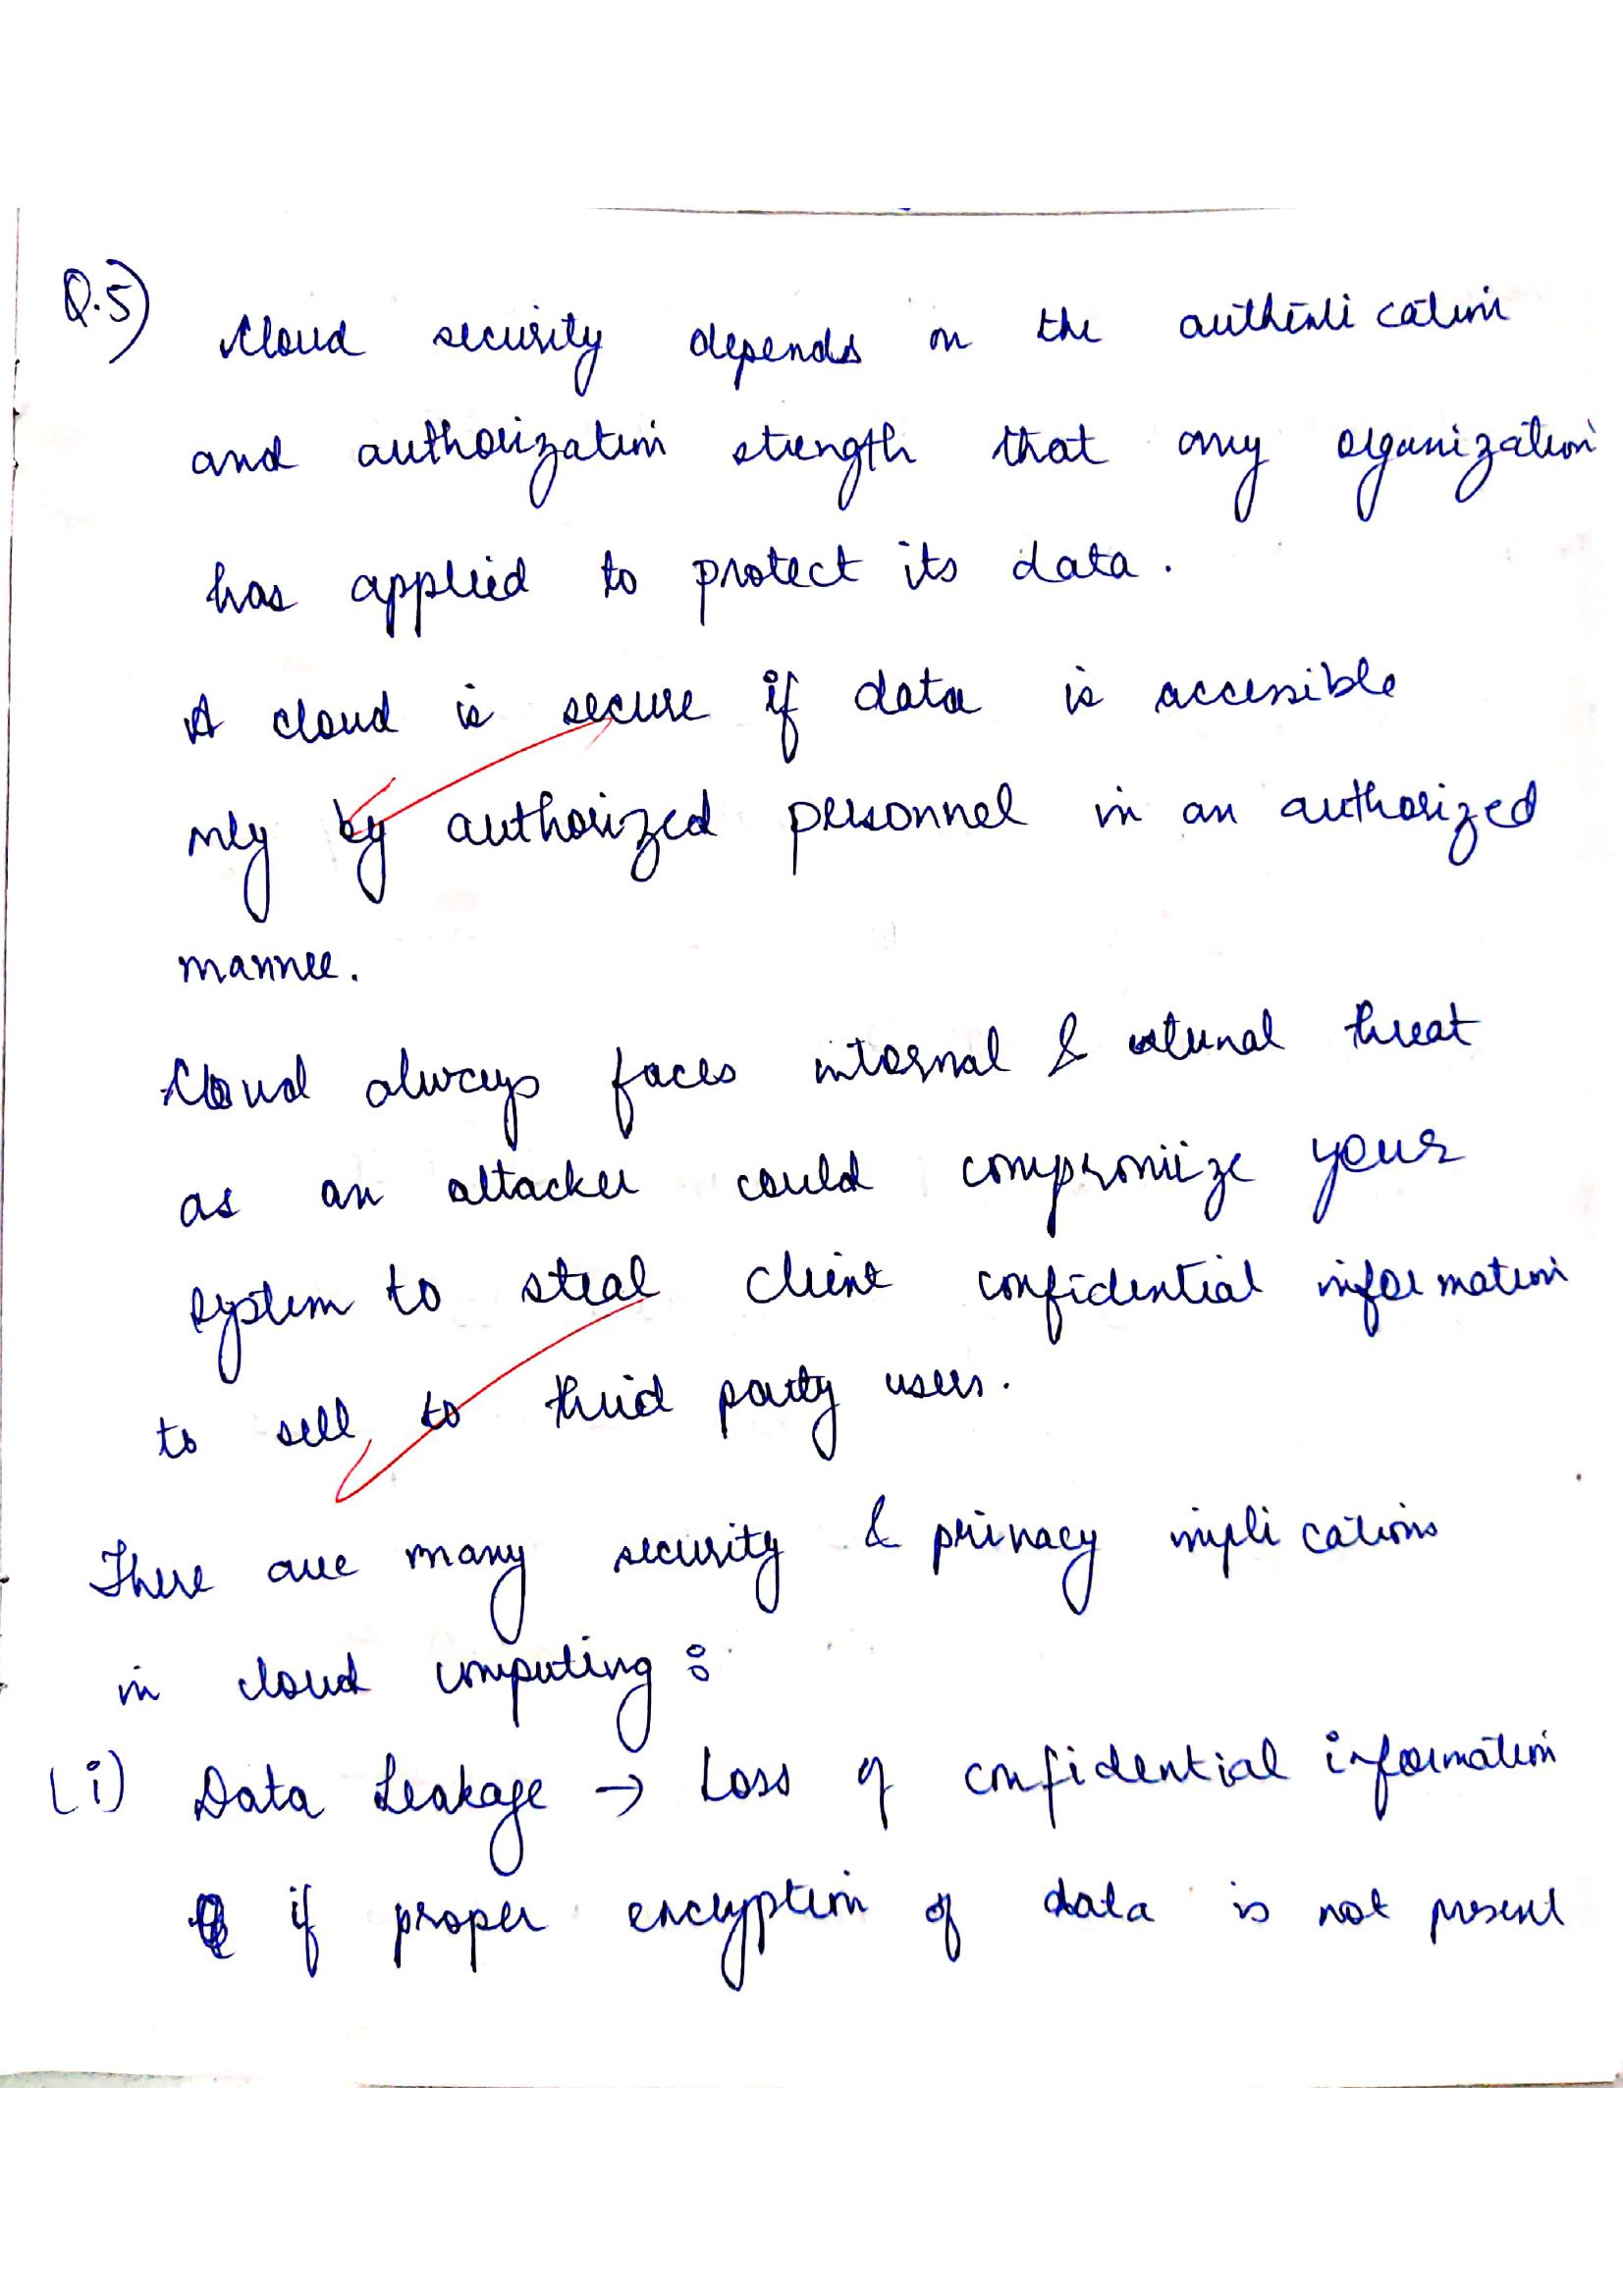 Q.5) Cloud security depends on the authentication
and authorization strength that any organization
has applied to protect its data.
A cloud is secure if data is accessible
only by authorized personnel in an authorized
manner.
Cloud always faces internal & external threat
as an attacker could compromize your
system to steal client confidential information
to sell to third party users.
There are many security & privacy implications
in cloud computing :
(i) Data Leakage → Loss of confidential information
if proper encryption of data is not present